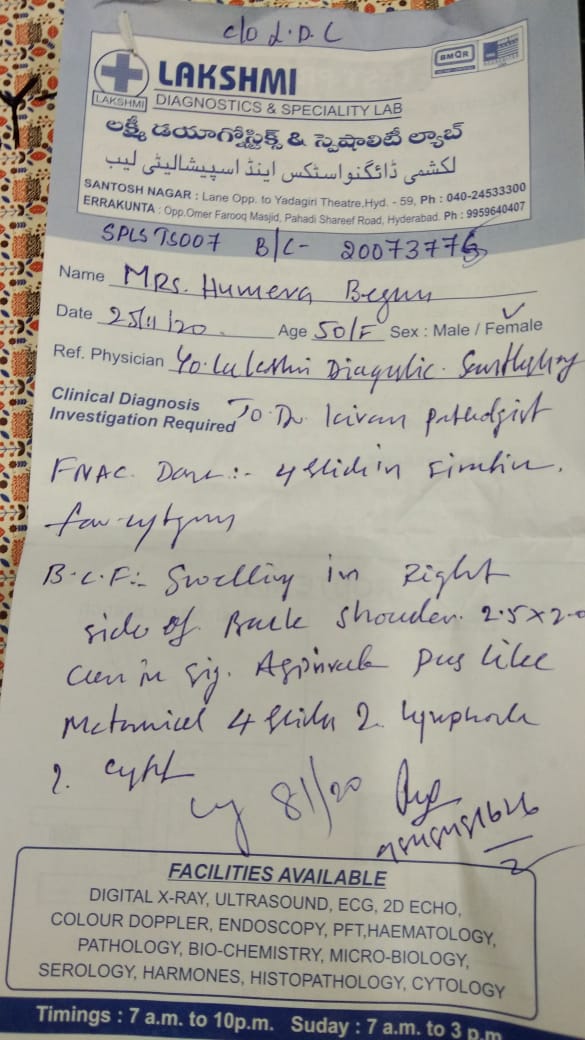 c/o L.D.C
BMQR
LAKSHMI
LAKSHMI
DIAGNOSTICS & SPECIALITY LAB
లక్ష్మీ డయాగ్నోస్టిక్స్ & స్పెషాలిటీ ల్యాబ్
لکشمی ڈائگنواسٹکس اینڈ اسپیشالیٹی لیب
SANTOSH NAGAR : Lane Opp. to Yadagiri Theatre,Hyd. - 59, Ph : 040-24533300
ERRAKUNTA : Opp.Omer Farooq Masjid, Pahadi Shareef Road, Hyderabad. Ph : 9959640407
SPLSTS007 B/C-
Name MRS. Humera Begum
Date 25/11/20 Age 50/F Sex : Male / Female
Ref. Physician
Clinical Diagnosis
Investigation Required To Dr. kiran pathologist
FNAC Done :- 4 slide in
for
swelling in Right
side of Back shouder. 2.5x2.0
cm in Pus like
4 slides ? lymphnode
?
cy 81/20
FACILITIES AVAILABLE
DIGITAL X-RAY, ULTRASOUND, ECG, 2D ECHO,
COLOUR DOPPLER, ENDOSCOPY, PFT,HAEMATOLOGY,
PATHOLOGY, BIO-CHEMISTRY, MICRO-BIOLOGY,
SEROLOGY, HARMONES, HISTOPATHOLOGY, CYTOLOGY
Timings : 7 a.m. to 10p.m. Suday : 7 a.m. to 3 p.m